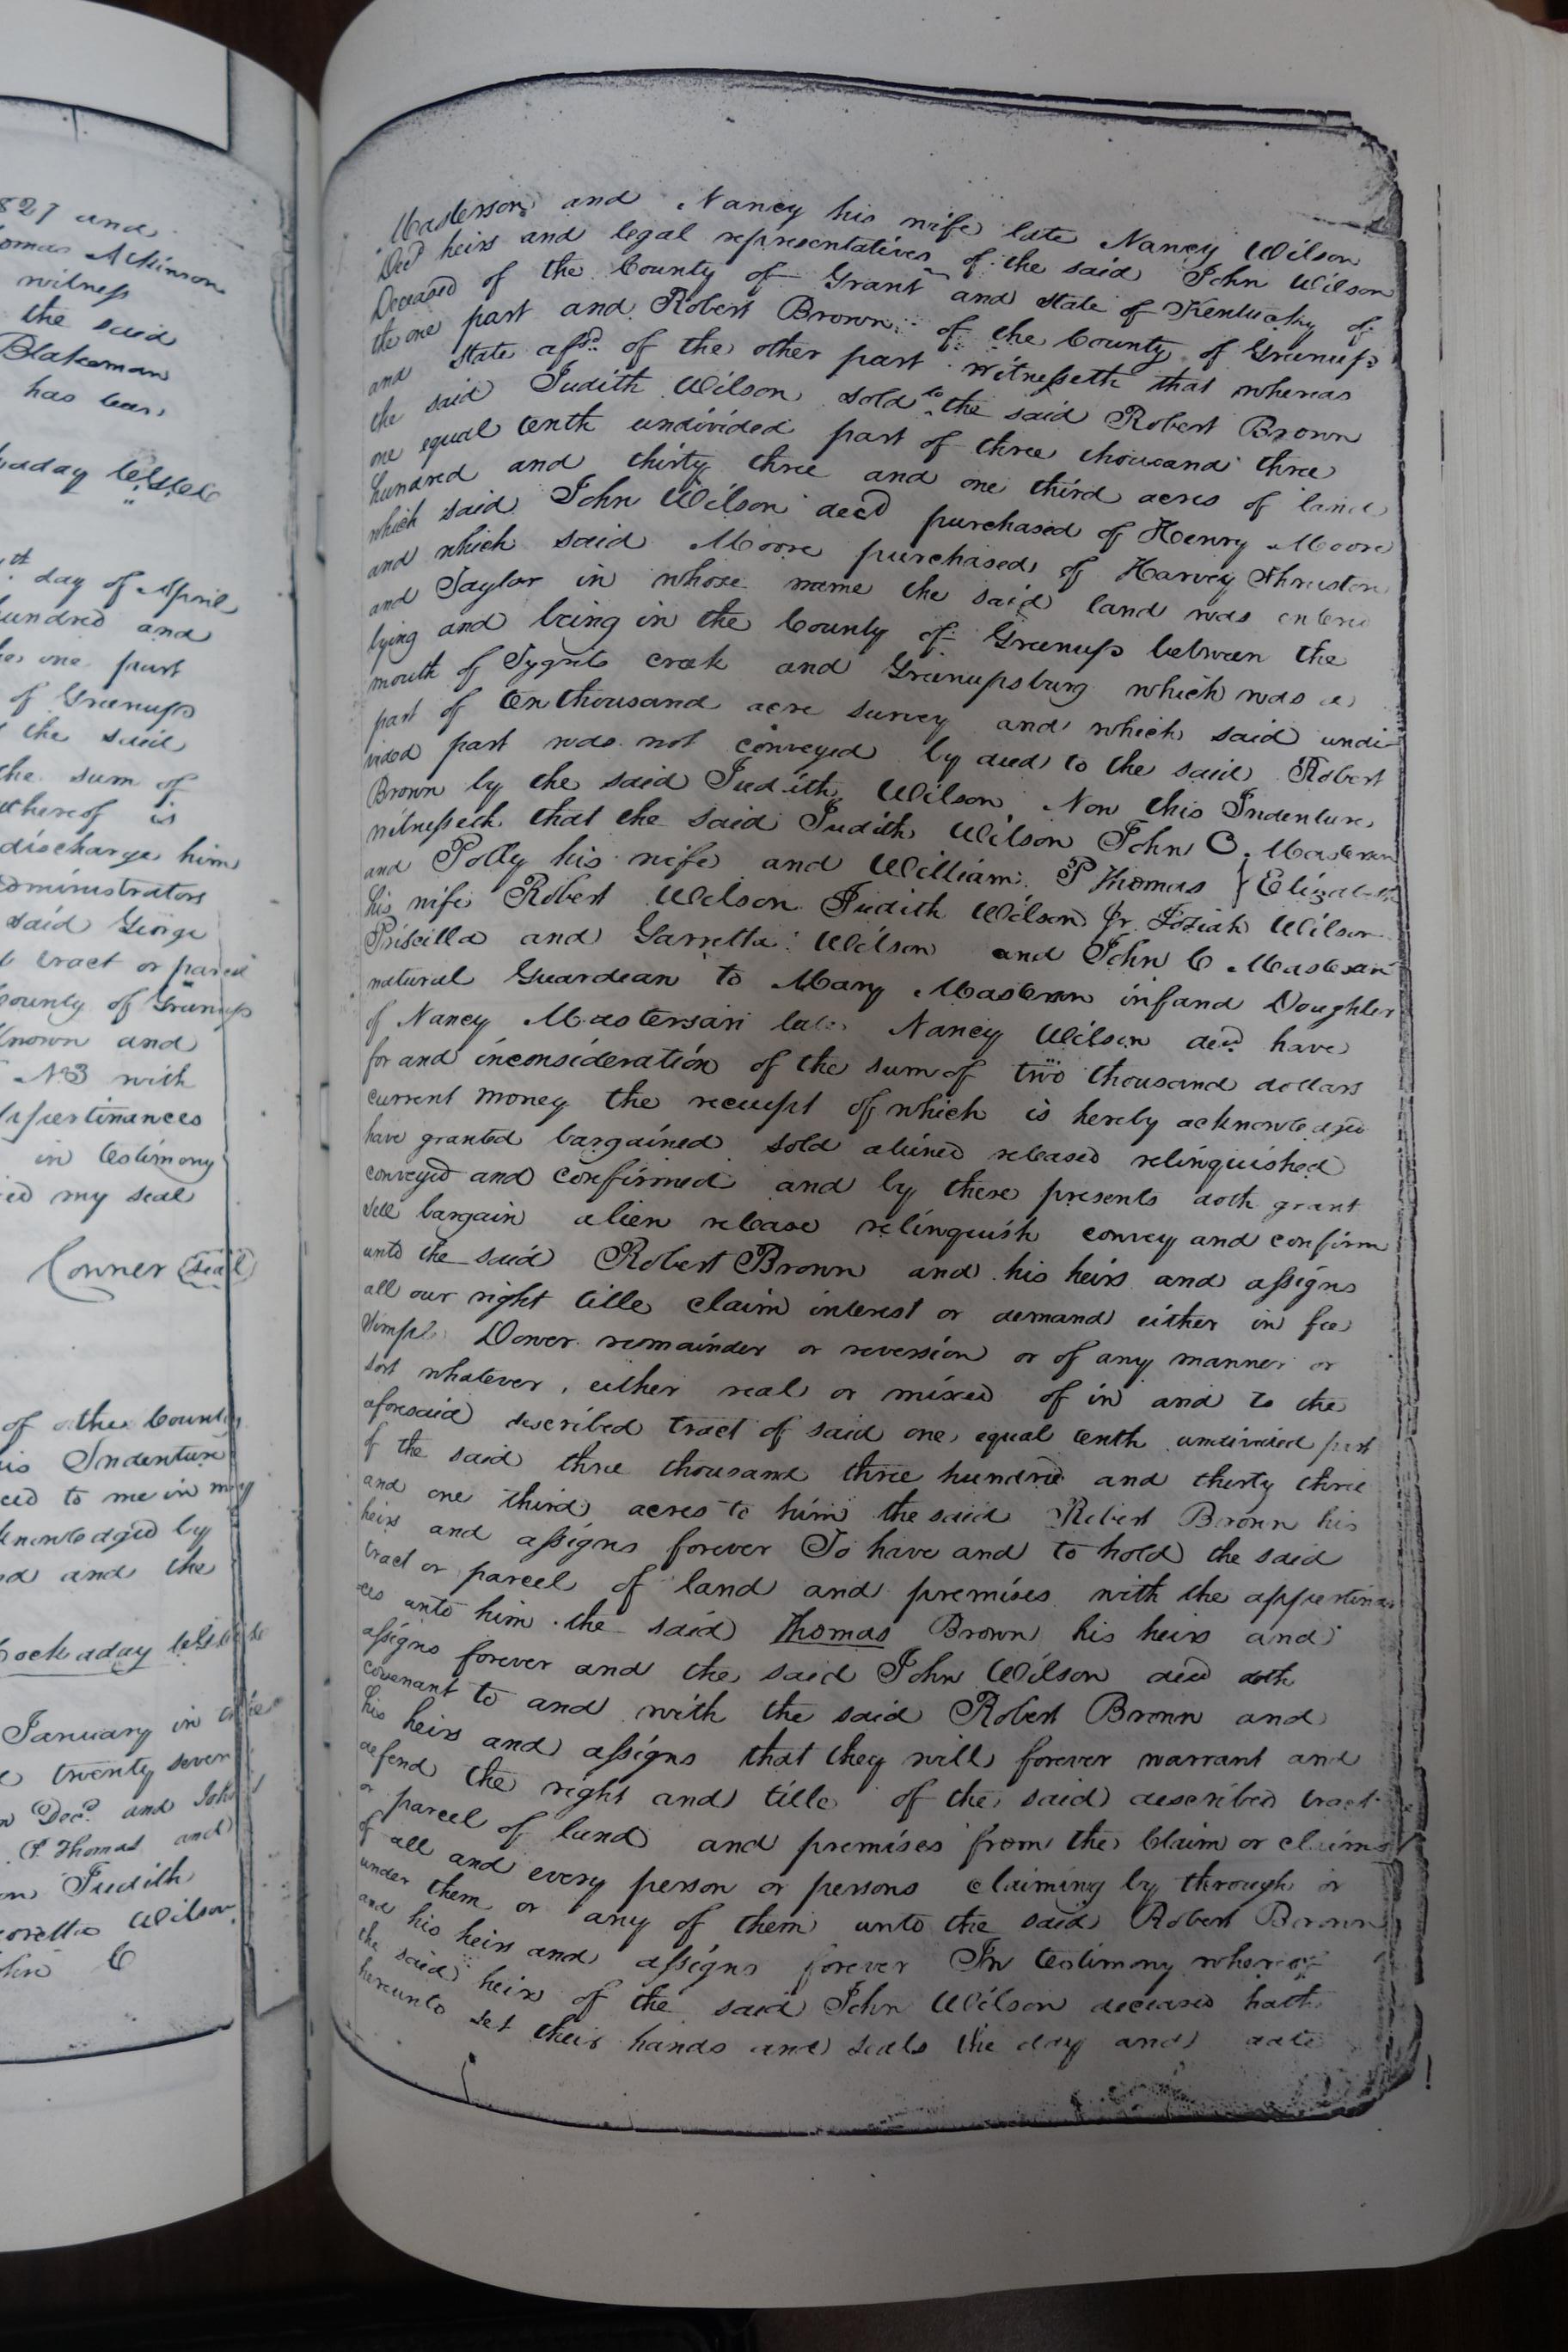 827 and
omas Atkinson
witness
the said
Blakeman
has been
kaday
th day of April
hundred and
he one part
of Greenup
the said
the sum of
whereof is
discharge him
administrators
said George
tract or parcel
County of Greenup
known and
No 3 with
appertinances
in testimony
ed my seal
Conner (seal)
of the County
is Indenture
ced to me in my
knowledged by
d and the
ockaday
January in the
twenty seven
n Decd. and John
P. Thomas and
on Judith
oretta Wilson
ohn C
Masterson and Nancy his wife late Nancy Wilson
Decd heirs and legal representatives of the said John Wilson
Deceased of the County of Grant and State of Kentucky of
the one part and Robert Brown of the County of Greenup
and State afsd. of the other part witnesseth that whereas
the said Judith Wilson sold to the said Robert Brown
one equal tenth undivided part of three thousand three
hundred and thirty three and one third acres of land
which said John Wilson decd purchased of Henry Moore
and which said Moore purchased of Harvey Thruston
and Taylor in whose name the said land was entered
lying and being in the County of Greenup between the
mouth of Tygrits creek and Greenupsburg which was a
part of ten thousand acre survey and which said undi-
vided part was not conveyed by deed to the said Robert
Brown by the said Judith Wilson Now this Indenture
witnesseth that the said Judith Wilson John C. Masterson
and Polly his wife and William P Thomas } Elizabeth
his wife Robert Wilson Judith Wilson Jr. Josiah Wilson
Priscilla and Garretta Wilson and John C Masterson
natural Guardean to Mary Masterson infand Doughter
of Nancy Mastersan late Nancy Wilson decd have
for and inconsideration of the sum of two thousand dollars
current money the receipt of which is hereby acknowledged
have granted bargained sold aliened released relinquished
conveyed and confirmed and by these presents doth grant
sell bargain alien release relinquish convey and confirm
unto the said Robert Brown and his heirs and assigns
all our right title claim interest or demand either in fee
simple Dower remainder or reversion or of any manner or
sort whatever, either real or mixed of in and to the
aforesaid described tract of said one equal tenth undivided part
of the said three thousand three hundred and thirty three
and one third acres to him the said Robert Brown his
heirs and assigns forever To have and to hold the said
tract or parcel of land and premises with the appertinan
ces unto him the said Thomas Brown his heirs and
assigns forever and the said John Wilson decd doth
covenant to and with the said Robert Brown and
his heirs and assigns that they will forever warrant and
defend the right and title of the said described tract
or parcel of land and premises from the claim or claims
of all and every person or persons claiming by through or
under them or any of them unto the said Robert Brown
and his heirs and assigns forever In testimony whereof
the said heirs of the said John Wilson deceased hath
hereunto set their hands and seals the day and date